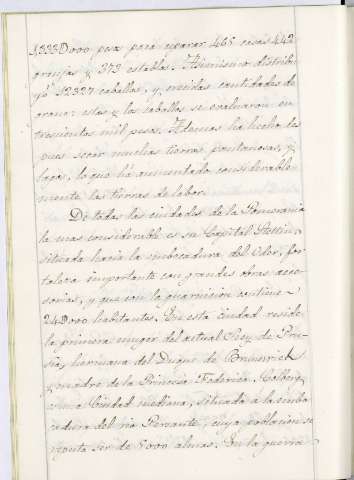 1,333D000 pesos para reparar 465 casas 442
granjas y 373 establos. Asimismo distribu
yó 12327 caballos, y crecidas cantidades de
grano: estos y los caballos se evaluaron en
trescientos mil pesos. Ademas ha hecho des
pues secar muchas tierras pantanosas, y
bajas, lo que há aumentado considerable
mente las tierras de labor.
De todas las ciudades de la Pomerania
la mas considerable es su Capital Stettin,
situada hacia la embocadura del Oder, for
taleza importante con grandes obras acce
sorias, y que con la guarnicion contiene
24D000 habitantes. En esta ciudad reside
la primera muger del actual Rey de Pru-
sia, hermana del Duque de Brunswick
y madre de la Princesa Federica. Colberg
es una Ciudad mediana, situada á la embo
cadura del rio Persante, cuya poblacion se
reputa ser de 5000 almas. En la guerra